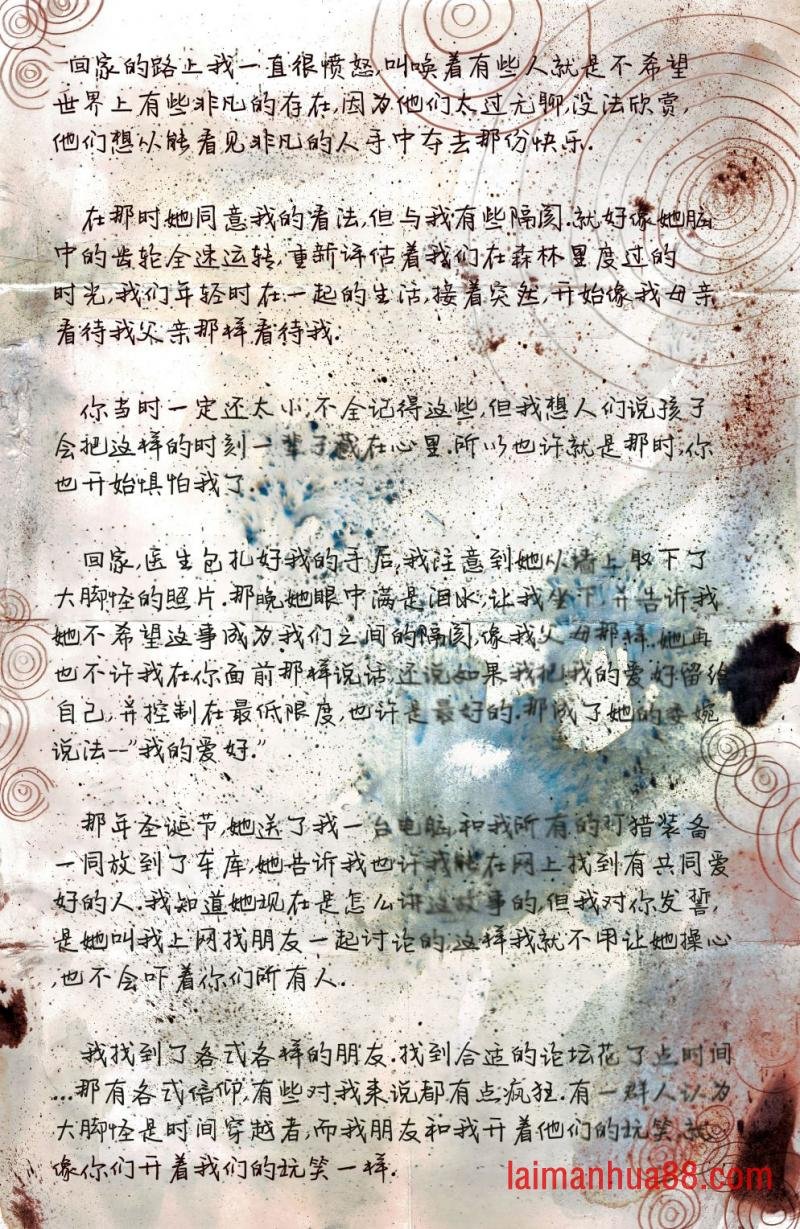 回家的路上我一直很愤怒,叫唤着有些人就是不希望
世界上有些非凡的存在,因为他们太过无聊,没法欣赏,
他们想从能看见非凡的人手中夺去那份快乐.
在那时她同意我的看法,但与我有些隔阂.就好像她脑
中的齿轮全速运转,重新评估着我们在森林里度过的
时光,我们年轻时在一起的生活,接着突然,开始像我母亲
看待我父亲那样看待我.
你当时一定还太小,不全记得这些,但我想人们说孩子
会把这样的时刻一辈子藏在心里.所以也许就是那时,你
也开始惧怕我了.
回家,医生包扎好我的手后,我注意到她从墙上取下了
大脚怪的照片.那晚她眼中满是泪水,让我坐下,并告诉我
她不希望这事成为我们之间的隔阂,像我父母那样.她再
也不许我在你面前那样说话,还说如果我把我的爱好留给
自己,并控制在最低限度,也许是最好的.那成了她的委婉
说法--"我的爱好."
那年圣诞节,她送了我一台电脑,和我所有的打猎装备
一同放到了车库,她告诉我也许我能在网上找到有共同爱
好的人.我知道她现在是怎么讲这故事的,但我对你发誓,
是她叫我上网找朋友一起讨论的,这样我就不用让她操心
,也不会吓着你们所有人.
我找到了各式各样的朋友.找到合适的论坛花了点时间
...那有各式信仰,有些对我来说都有点疯狂.有一群人认为
大脚怪是时间穿越者,而我朋友和我开着他们的玩笑,就
像你们开着我们的玩笑一样.
laimanhua88.com